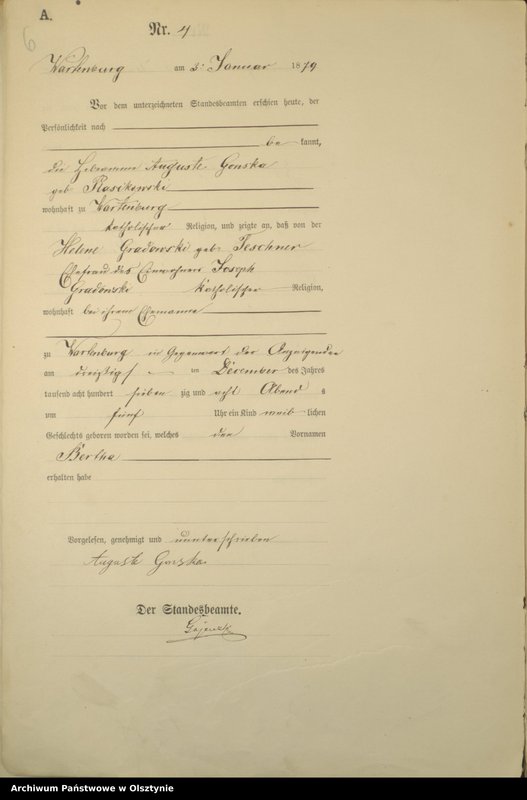 A.
6
Nr. 4
Wartenburg am 2. Januar 1879
Vor dem unterzeichneten Standesbeamten erschien heute, der
Persönlichkeit nach
be kannt,
die Hebeamme Auguste Gonska
geb Rasikowski
wohnhaft zu Wartenburg
katholischer Religion, und zeigte an, daß von der
Helene Gradowski geb. Teschner
Ehefrau des Einwohners Joseph
Gradowski katholischer Religion,
wohnhaft bei ihrem Ehemanne
zu Wartenburg in Gegenwart der Anzeigenden
am dreizigst ten Dezember des Jahres
tausend acht hundert sieben zig und acht Abend s
um fünf Uhr ein Kind weib lichen
Geschlechts geboren worden sei, welches den Vornamen
Bertha
erhalten habe
Vorgelesen, genehmigt und unterschrieben
Auguste Gonska
Der Standesbeamte.
Archiwum Państwowe w Olsztynie